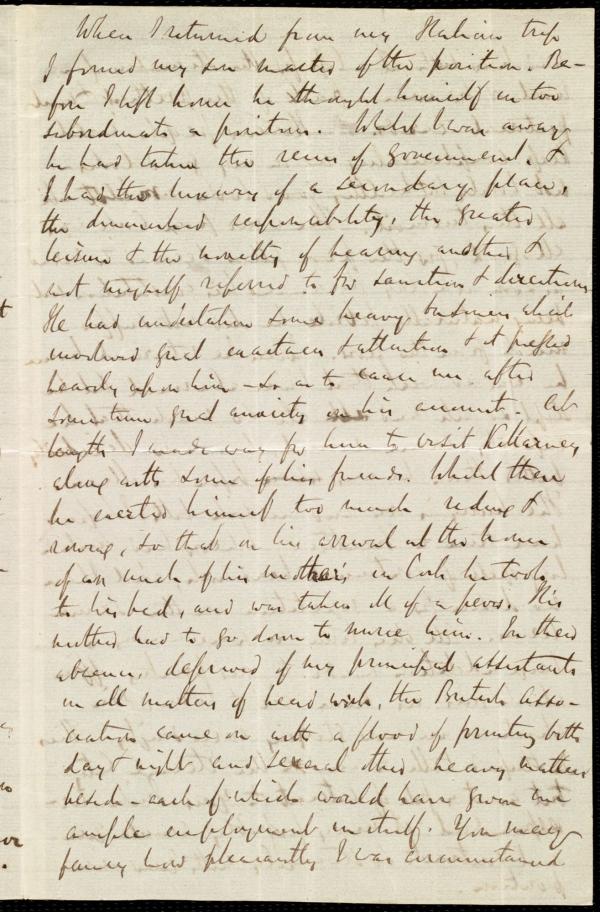 When I returned from my Italian trip
I found my son master of the position. Be-
fore I left home he thought himself in too
subordinate a position. Whilst I was away
he had taken the reins of government, &
I had the luxury of a secondary place,
the diminished responsibility, the greater
leisure & the novelty of hearing another &
not myself referred to for sanction & directions
He had undertaken some heavy business which
involved great exactness & attention & it pressed
heavily upon him – so as to cause me after
some time great anxiety on his account. At
length I made way for him to visit Killarney
along with some of his friends. Whilst there
he exerted himself too much, riding &
rowing, so that on his arrival at the house
of an uncle of his mother's in Cork he took
to his bed, and was taken ill of a fever. His
mother had to go down to nurse him. In their
absence, deprived of my principal assistants
in all matters of head work, the British Asso-
ciation came on with a flood of printing both
day & night and several other heavy matters
beside – each of which would have given me
ample employment in itself. You may
fancy how pleasantly I was circumstanced